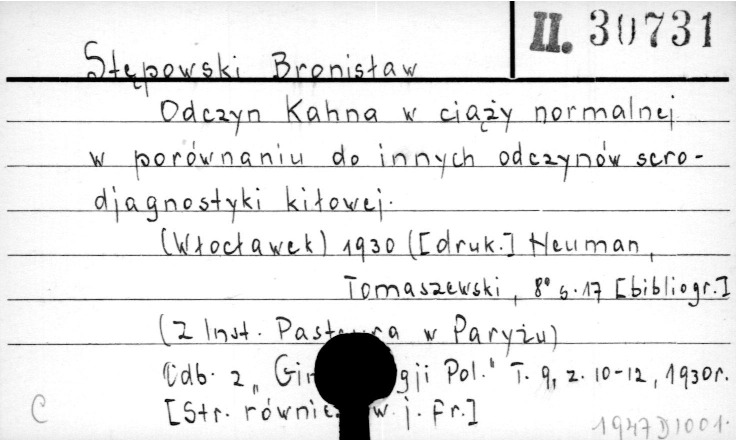 II. 30731
Stępowski Bronisław
Odczyn Kahna w ciąży normalnej
w porównaniu do innych odczynów sero-
djagnostyki kiłowej.
(Włocławek) 1930 ([druk.] Neuman,
Tomaszewski, 8° s. 17 [bibliogr.]
(Z Inst. Pasteura w Paryżu)
Odb. z „Gin gji Pol." T. 9, z. 10-12, 1930r.
[Str. również w j. fr.]
C 1947 D 1001.